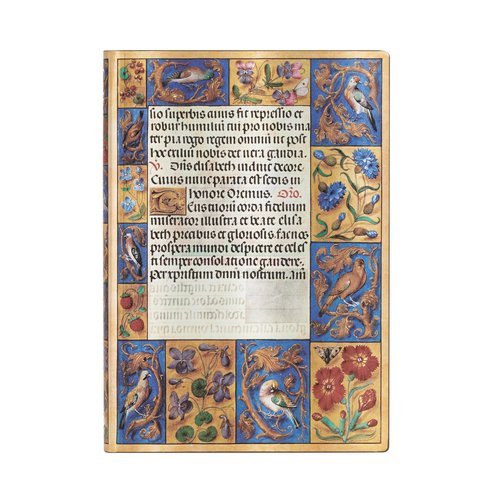 sio superbis auus fit repressio et
robur humilui tui pro nobis ma
ter pia rogo regem omniu ut post
hoc exiliu nobis det uera gaudia.
V. Diffusa elisabeth indine decore.
Cuius nunc parata est sedis in
honore Oremus. Oro.
corda fidelium
miserator illustra et beate elisa
beth precibus et gloriosis fac nos
prospera mundi despicere et celes
ti semper consolatione gaudere.
per xpristum dnm nostrum. am